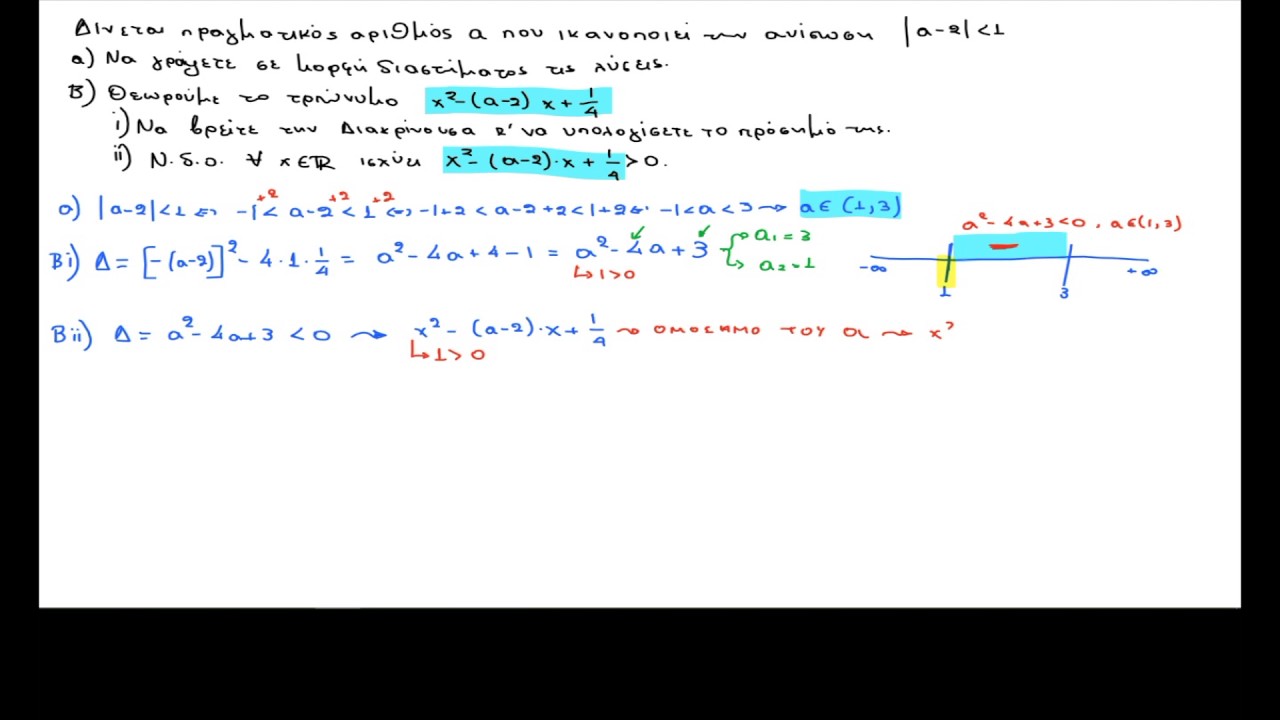 Δίνεται πραγματικός αριθμός α που ικανοποιεί την ανίσωση |α-2|<1
α) Να γράψετε σε μορφή διαστήματος τις λύσεις.
Β) Θεωρούμε το τριώνυμο x²-(α-2) x + 1/4
i) Να βρείτε την Διακρίνουσα κ' να υπολογίσετε το πρόσημό της.
ii) Ν.δ.ο. ∀ x∈ℝ ισχύει x²-(α-2)·x + 1/4 > 0.
α) |α-2|<1 ⇔ -1 < α-2 < 1 ⇔ -1+2 < α-2+2 < 1+2 ⇔ -1<α<3 → α∈(1,3)
+2 +2 +2
α²-4α+3<0, α∈(1,3)
Βi) Δ = [-(α-2)]² - 4·1·1/4 = α²-4α+4-1 = α²-4α+3
α₁=3
α₂=1
↳1>0
-∞ 1 3 +∞
Βii) Δ = α²-4α+3 <0 → x²-(α-2)·x + 1/4 → ομόσημο του α → x²
↳1>0